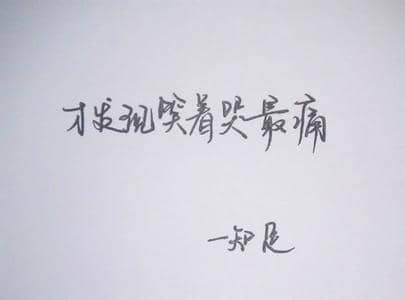 才发现笑着哭最痛
一知足